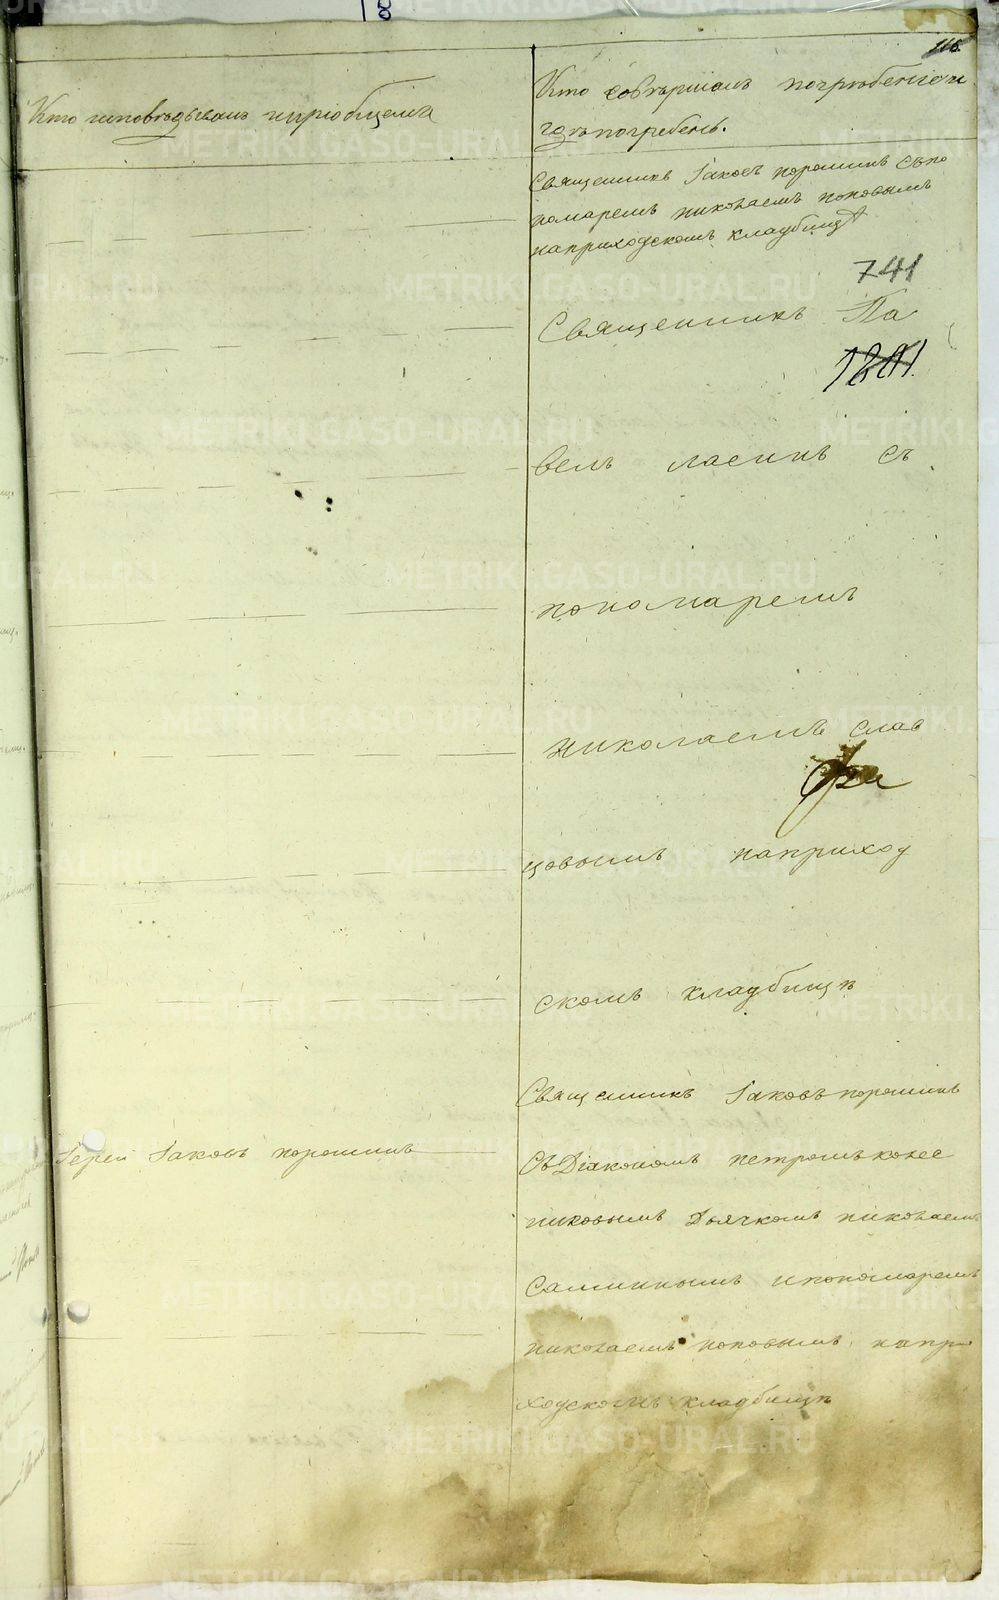 116.
Кто исповѣдывалъ и пріобщалъ
Кто совершалъ погрѣбеніе и
гдѣ погребены.
Священникъ Іаковъ порошинъ съ по
номаремъ николаемъ поповымъ
наприходскомъ кладбищѣ
741
Священникъ Па
1201.
велъ ласинъ съ
пономаремъ
николаемъ слав
цовымъ наприход
скомъ кладбищѣ
Священникъ Іаковъ порошинъ
Іерей Іаковъ порошинъ
Съ Діякономъ петромъ
никовымъ Дьячкомъ николаемъ
Саминнымъ и пономаремъ
николаемъ поповымъ напри
ходскомъ кладбищѣ
METRIKI.GASO-URAL.RU